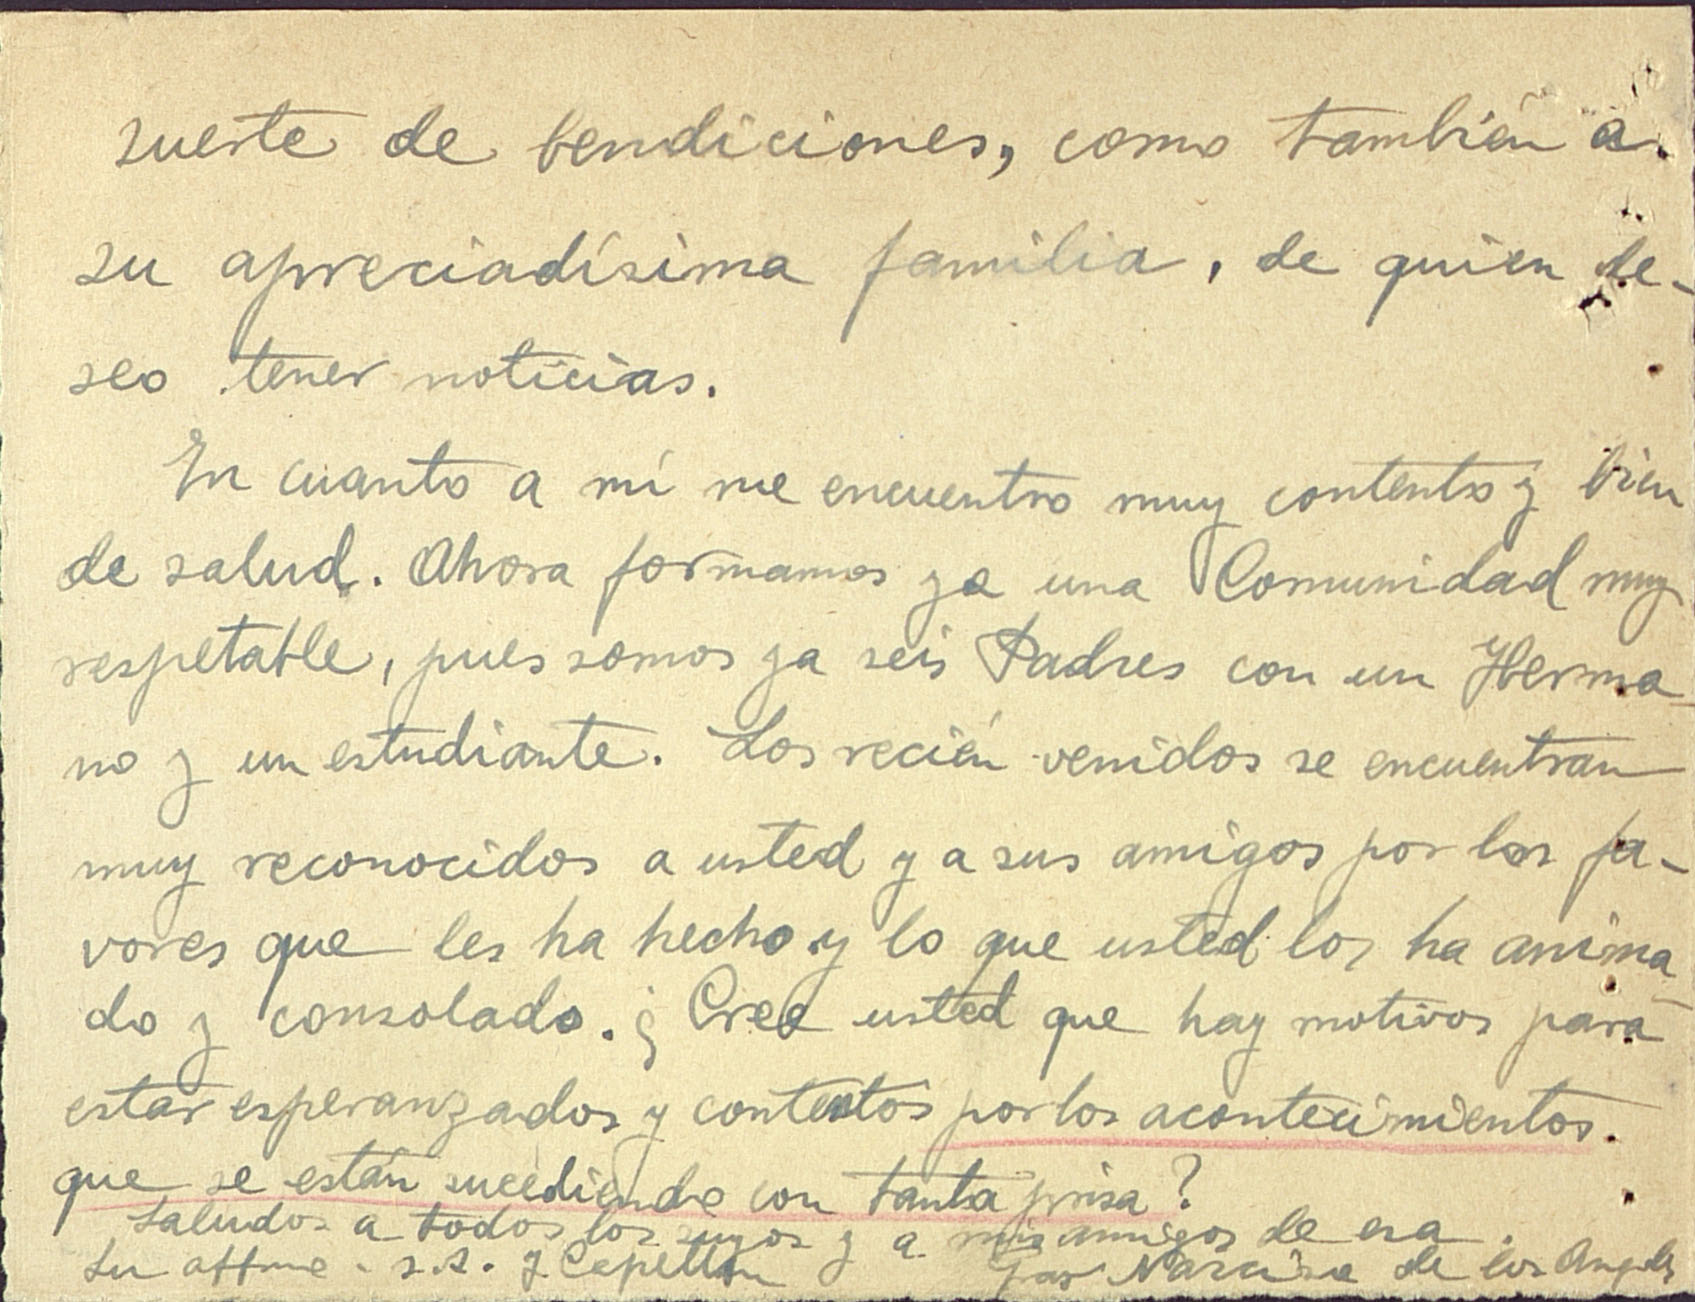 suerte de bendiciones, como también a
su apreciadísima familia, de quien de-
seo tener noticias.
En cuanto a mí me encuentro muy contento y bien
de salud. Ahora formamos ya una Comunidad muy
respetable, pues somos ya seis Padres con un Herma-
no y un estudiante. Los recién venidos se encuentran
muy reconocidos a usted y a sus amigos por los fa-
vores que les ha hecho y lo que usted los ha anima-
do y consolado. ¿Cree usted que hay motivos para
estar esperanzados y contentos por los acontecimientos
que se están sucediendo con tanta prisa?
Saludos a todos los suyos y a mis amigos de esa.
Su affmo. s.s. y Capellán Fray Narciso de los Angeles